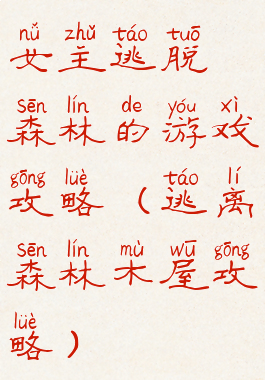 nǚ zhǔ táo tuō
女主逃脱
sēn lín de yóu xì
森林的游戏
gōng lüè táo lí
攻略（逃离
sēn lín mù wū gōng
森林木屋攻
lüè
略）